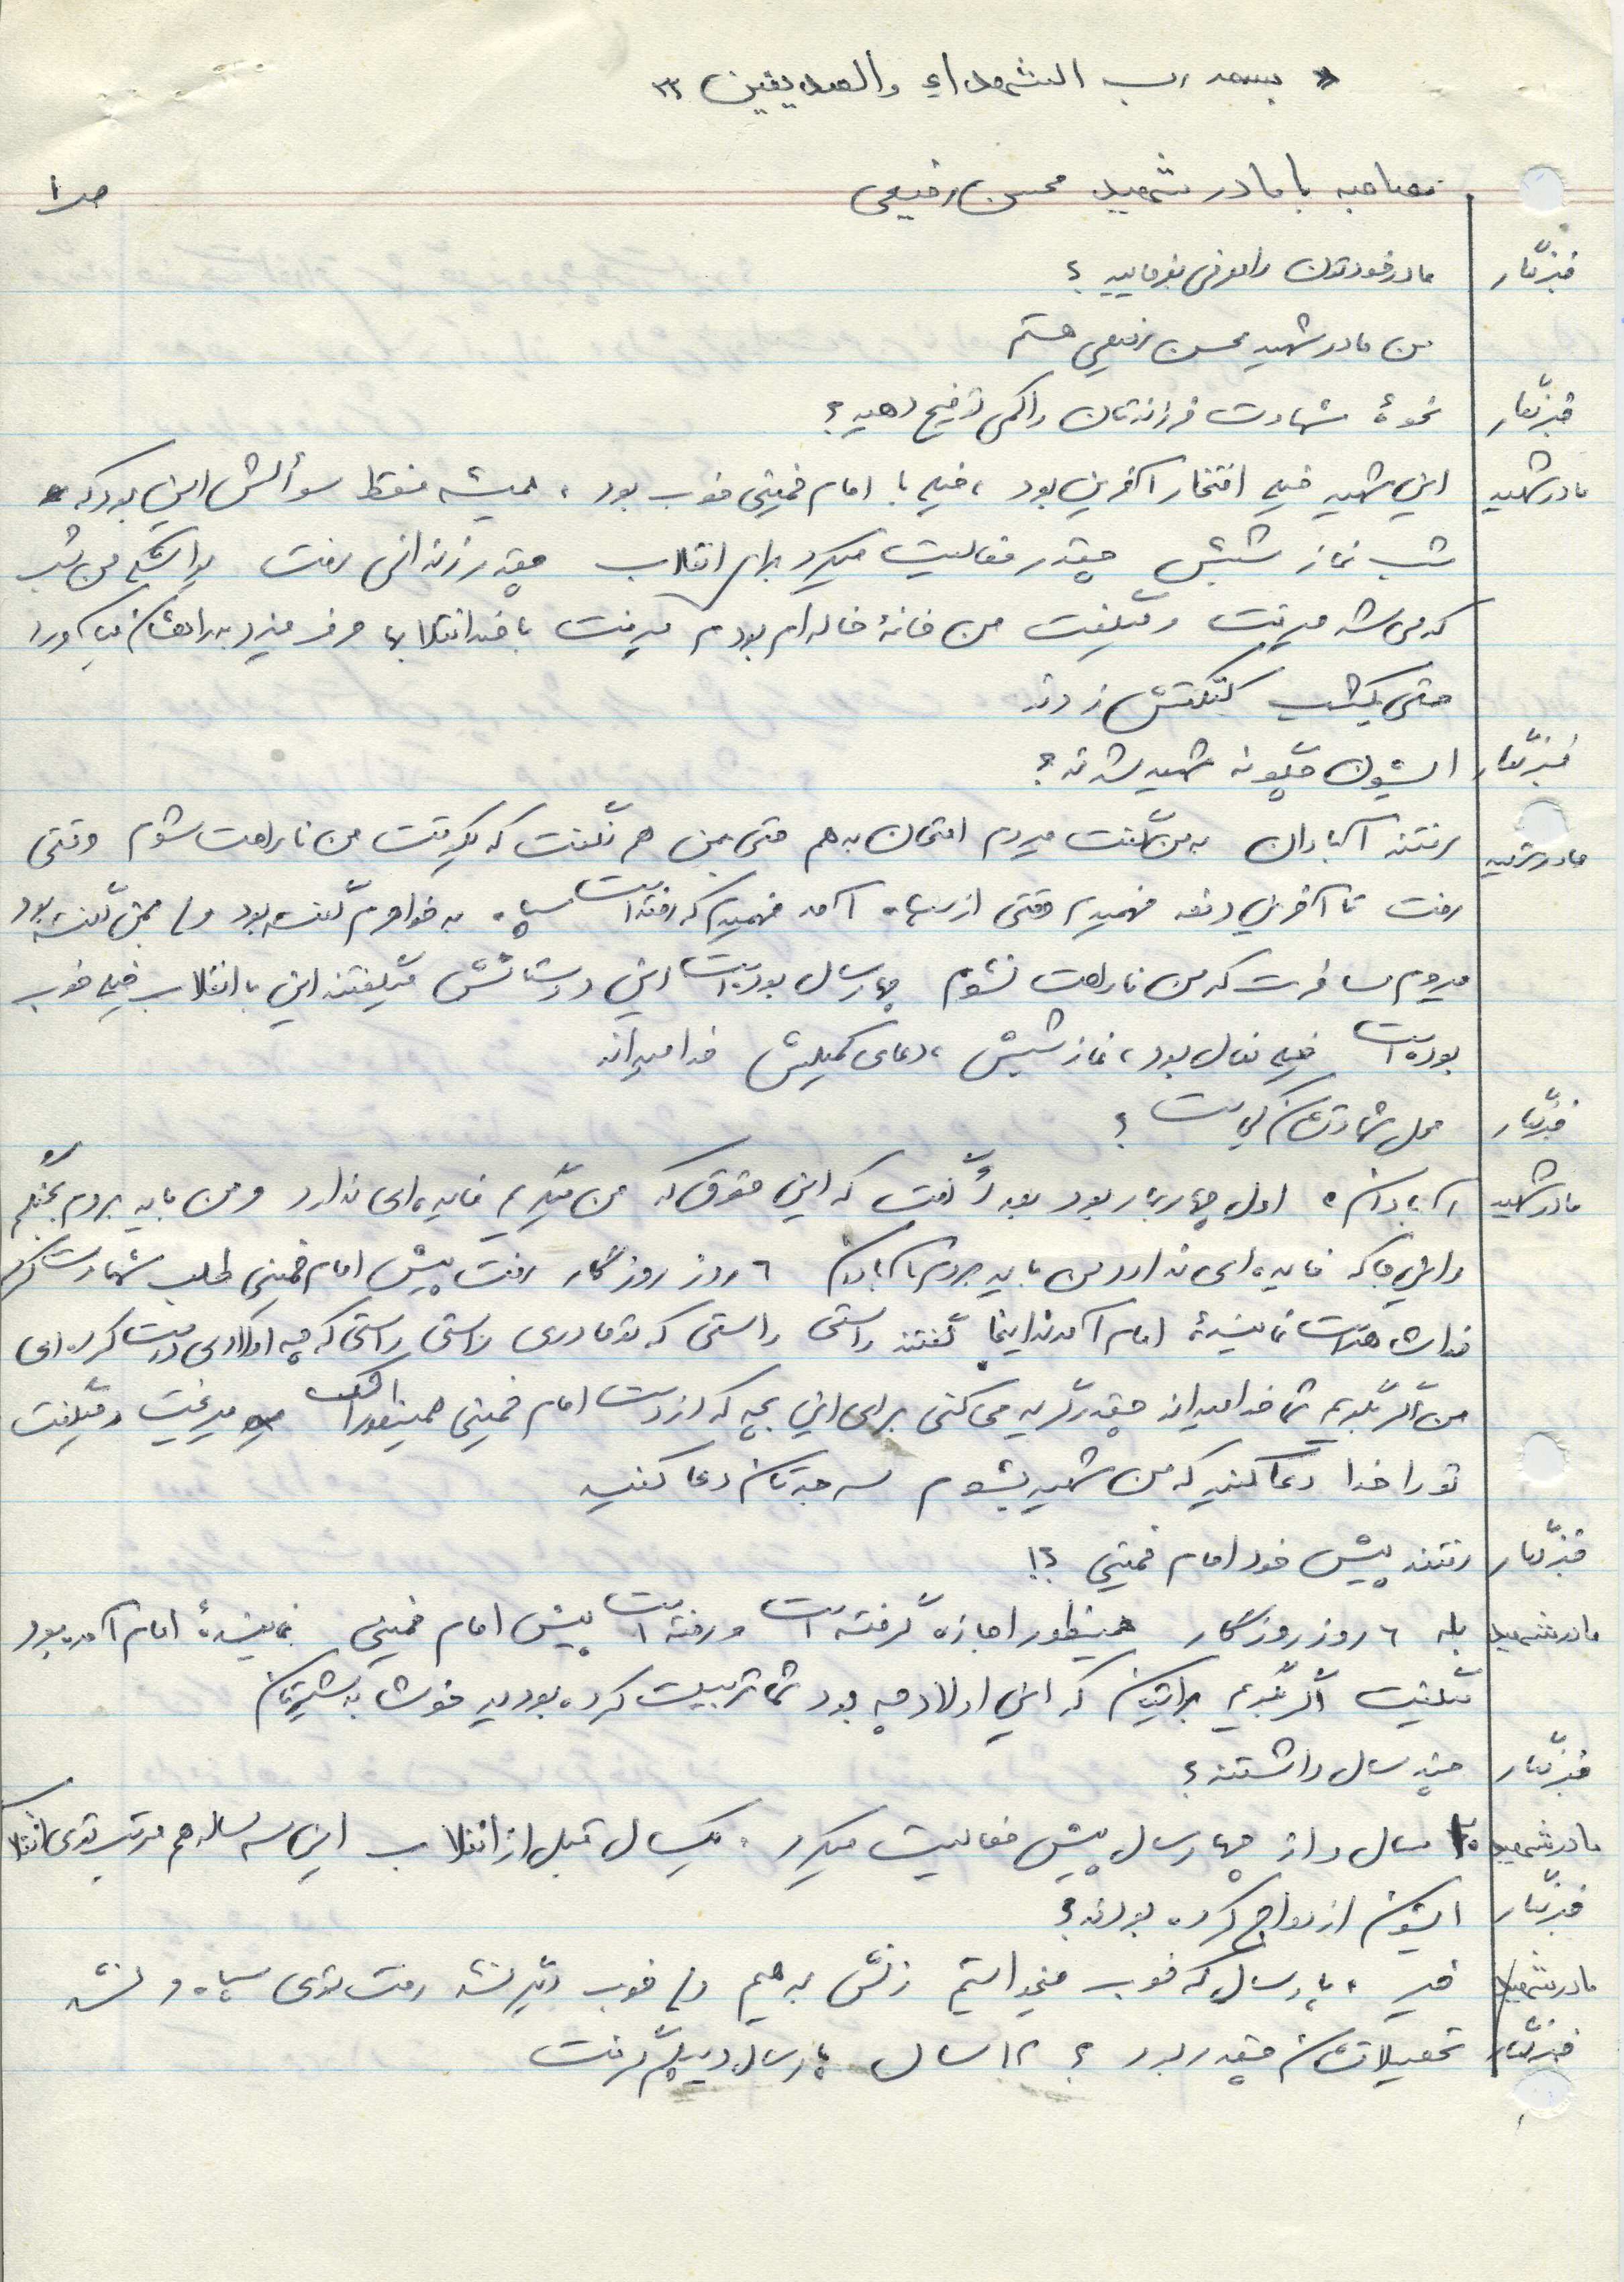 « بسمه رب الشهداء والصدیقین »
مصاحبه با مادر شهید محسن رفیعی
ص ۱
خبرنگار مادر خودتون را معرفی بفرمایید ؟
من مادر شهید محسن رفیعی هستم
خبرنگار نحوۀ شهادت فرزندتان را کمی توضیح دهید ؟
مادر شهید این شهید خیلی افتخار آفرین بود ، خیلی با امام خمینی خوب بود ، همیشه فقط سوألش این بود که
شب نماز شبش چقدر فعالیت میکرد برای انقلاب چقدر زندانی رفت یواشکی من شب
که می شد میرفت و میگفت من خانۀ خاله ام بودم میرفت با ضد انقلابها حرف میزد به راهشان میآورد
حتی یکشب کتکش زدند
خبرنگار ایشون چگونه شهید شدند ؟
مادر شهید رفتند آبادان به من گفت میروم امتحان بدهم حتی بمن هم نگفت که یکوقت من ناراحت شوم وقتی
رفت تا آخرین دفعه فهمیدم وقتی از سپاه آمد فهمیدم که رفته است سپاه به خواهرم گفته بود ولی بمن گفته بود
میروم مسافرت که من ناراحت نشوم چهار سال بود است این دوستانش میگفتند این با انقلاب خیلی خوب
بوده است خیلی فعال بود ، نماز شبش ، دعای کمیلش خدا میداند
خبرنگار محل شهادتشان کجاست ؟
مادر شهید آبادان ، اول چابهار بود بعد گفت که این حقوق که من میگیرم فایده ای ندارد و من باید بروم بجنگم
و اینجا که فایده ای ندارد من باید بروم آبادان ۶ روز روزگار رفت پیش امام خمینی طلب شهادت کرد
خدا شاهد است نمایندۀ امام آمدند اینجا گفتند راستی راستی که تو مادری راستی راستی که چه اولادی درست کرده ای
من اگر بگویم شما خدا میداند چقدر گریه می کنی برای این بچه که از دست امام خمینی همینطور اشک میریخت و میگفت
تو را خدا دعا کنید که من شهید بشوم به جدتان دعا کنید
خبرنگار رفتند پیش خود امام خمینی ؟!
مادر شهید بله ۶ روز روزگار همینطور اجازه گرفته است و رفته است پیش امام خمینی نمایندۀ امام آمده بود
میگفت اگر بگویم برایتان که این اولاد چه بود شما تربیت کرده بودید خوشا به شیرتان
خبرنگار چند سال داشتند ؟
مادر شهید ۲۰ سال و از چهار سال پیش فعالیت میکرد . یکسال قبل از انقلاب این سه سال هم مرتب توی انقلاب
خبرنگار ایشون ازدواج کرده بودند ؟
مادر شهید خیر ، پارسال که خوب میخواستیم زنش بدهیم ولی خوب دیگر نشد رفت توی سپاه و نشد
خبرنگار تحصیلاتشان چقدر بود ؟ ۱۲ سال پارسال دیپلم گرفت